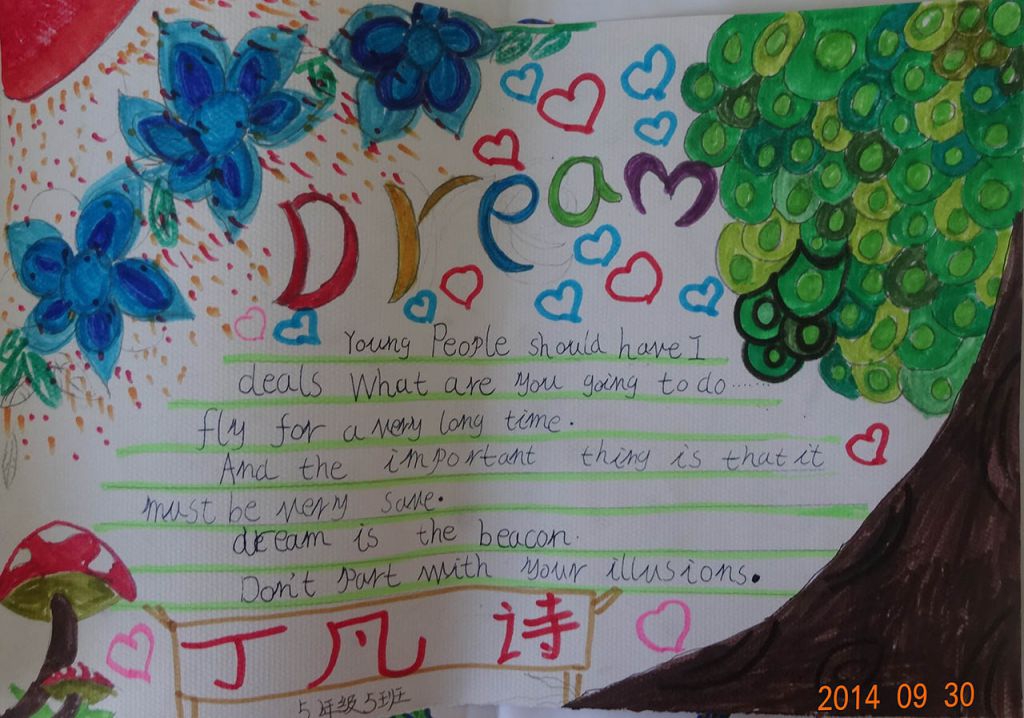 Dream
Young People should have I
deals What are you going to do......
fly for a very long time.
And the important thing is that it
must be very save.
dream is the beacon.
Don't Part with your illusions.
丁凡诗
5年级5班
2014 09 30